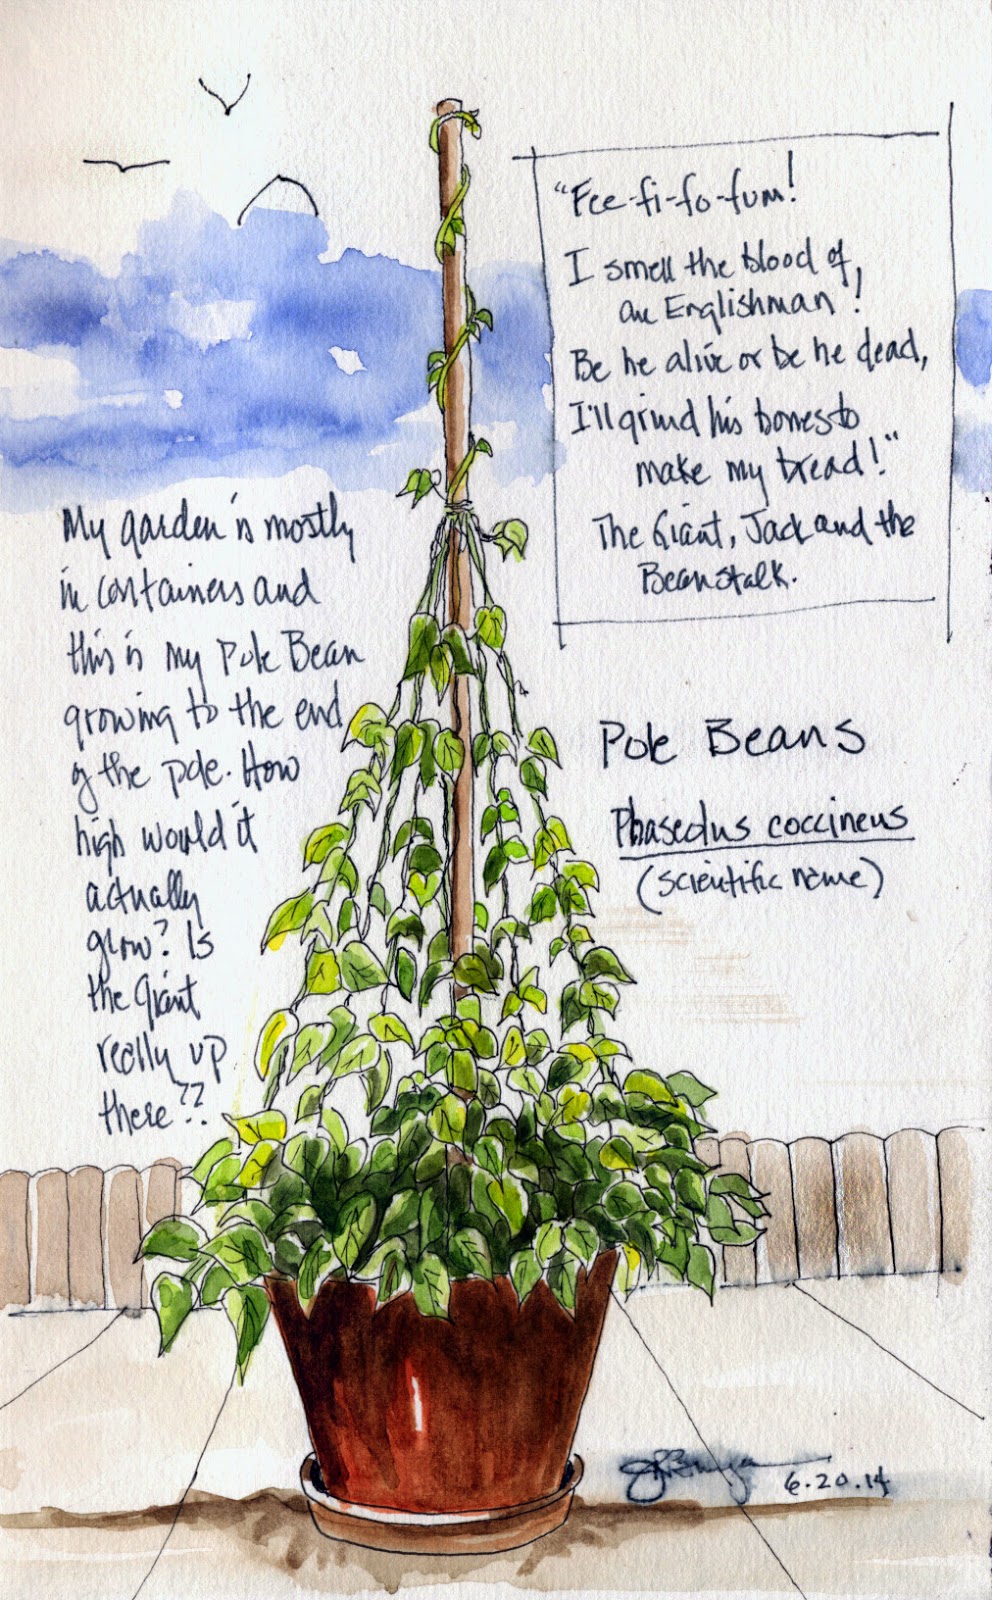 "Fee-fi-fo-fum!
I smell the blood of
an Englishman!
Be he alive or be he dead,
I'll grind his bones to
make my bread!"
The Giant, Jack and the
Beanstalk.
My garden is mostly
in containers and
this is my Pole Bean
growing to the end
of the pole. How
high would it
actually
grow? Is
the Giant
really up
there??
Pole Beans
Phaseolus coccineus
(scientific name)
6.20.14